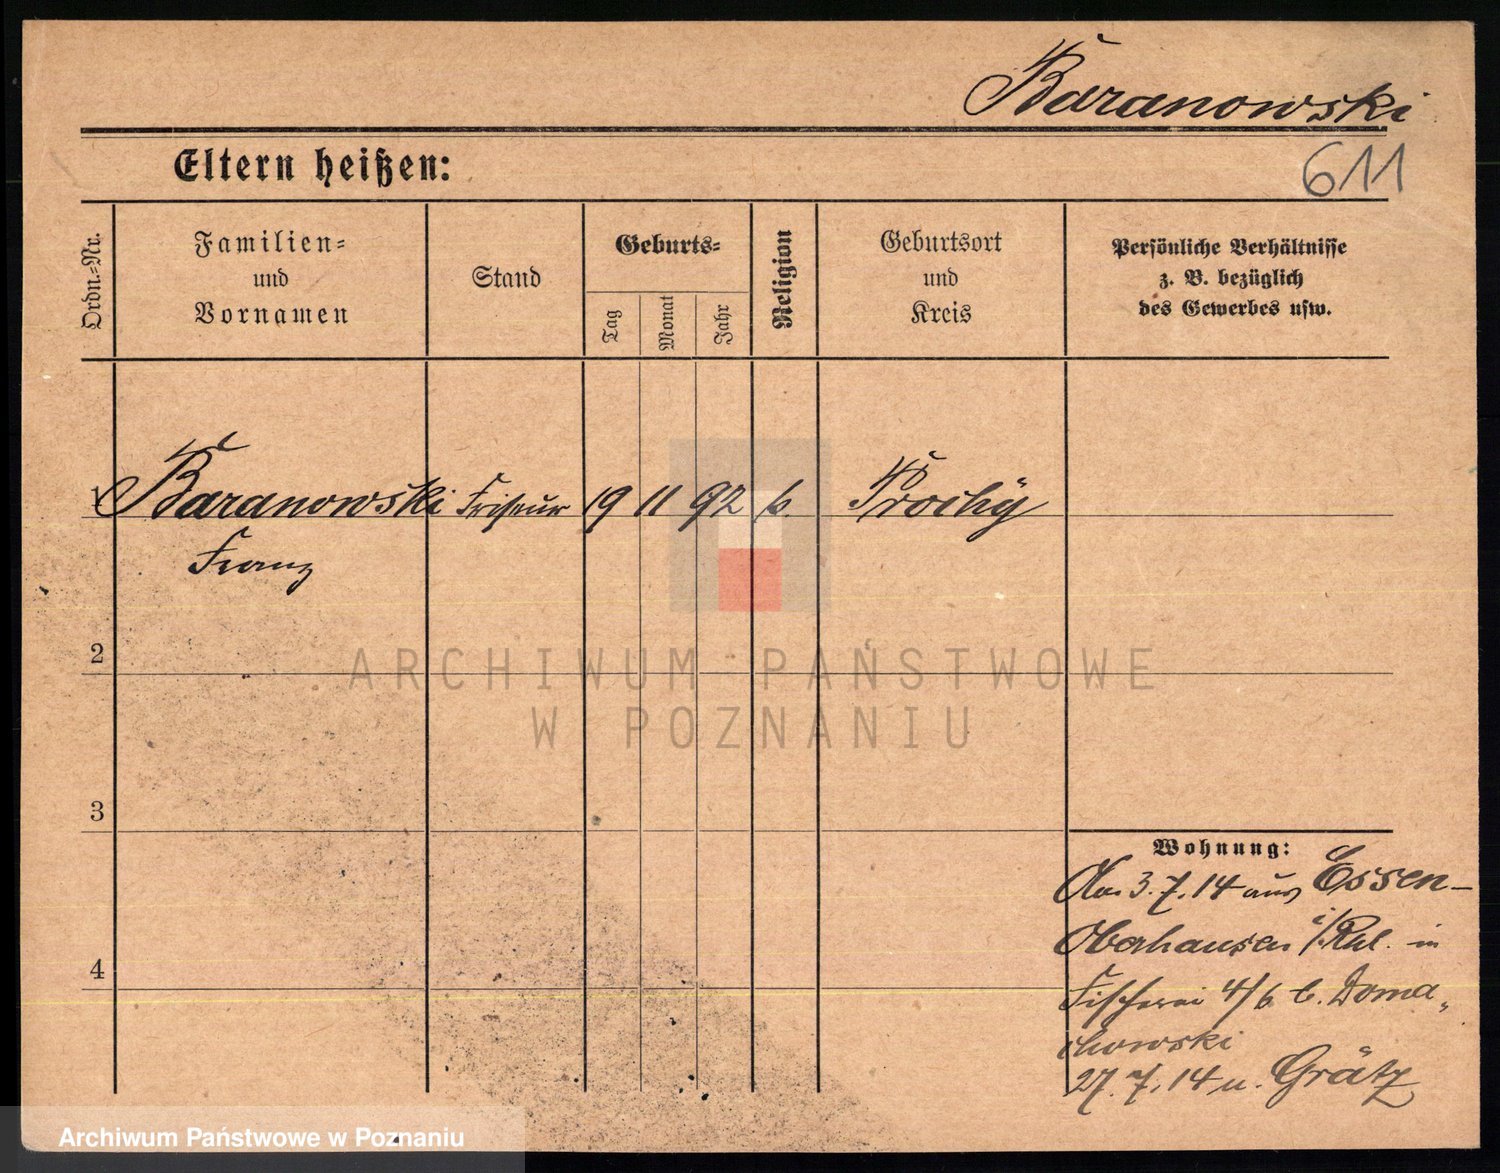 Baranowski
Eltern heißen:
611
Ordn.-Nr.
Familien- und Vornamen
Stand
Geburts-
Tag
Monat
Jahr
Religion
Geburtsort und Kreis
Persönliche Verhältnisse
z. B. bezüglich
des Gewerbes usw.
1 Baranowski Friseur 19 11 92 k.
Franz
2
ARCHIWUM PAŃSTWOWE
W POZNANIU
3
Wohnung:
3.7.14 aus Essen-
Oberhausen i/Rhl. in
4
Fischerei 4/6 b. Doma-
chowski
27.7.14 n. Grätz
Archiwum Państwowe w Poznaniu